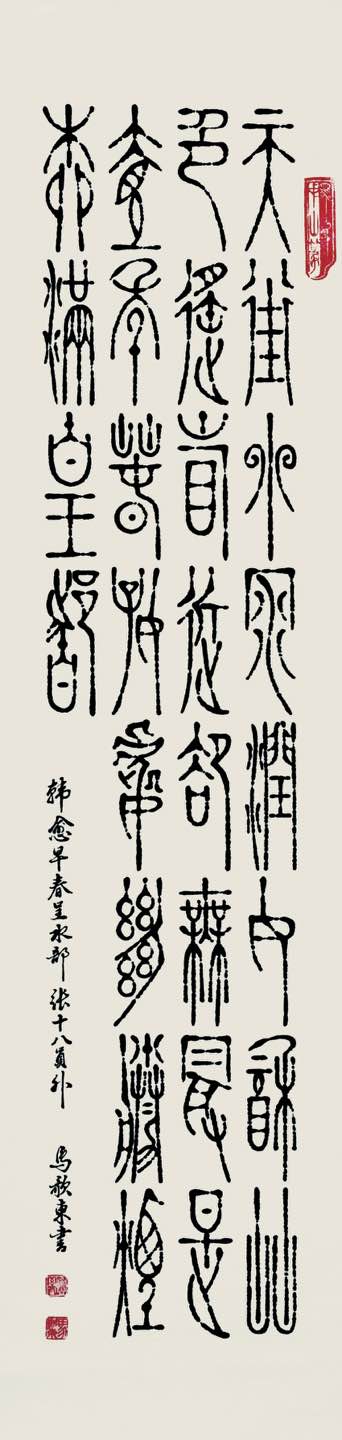 天街小雨潤如酥艸
色遥看近却無最是
壹年春好處絕勝煙
柳滿皇都
韩愈早春呈水部张十八員外
馬歌東書